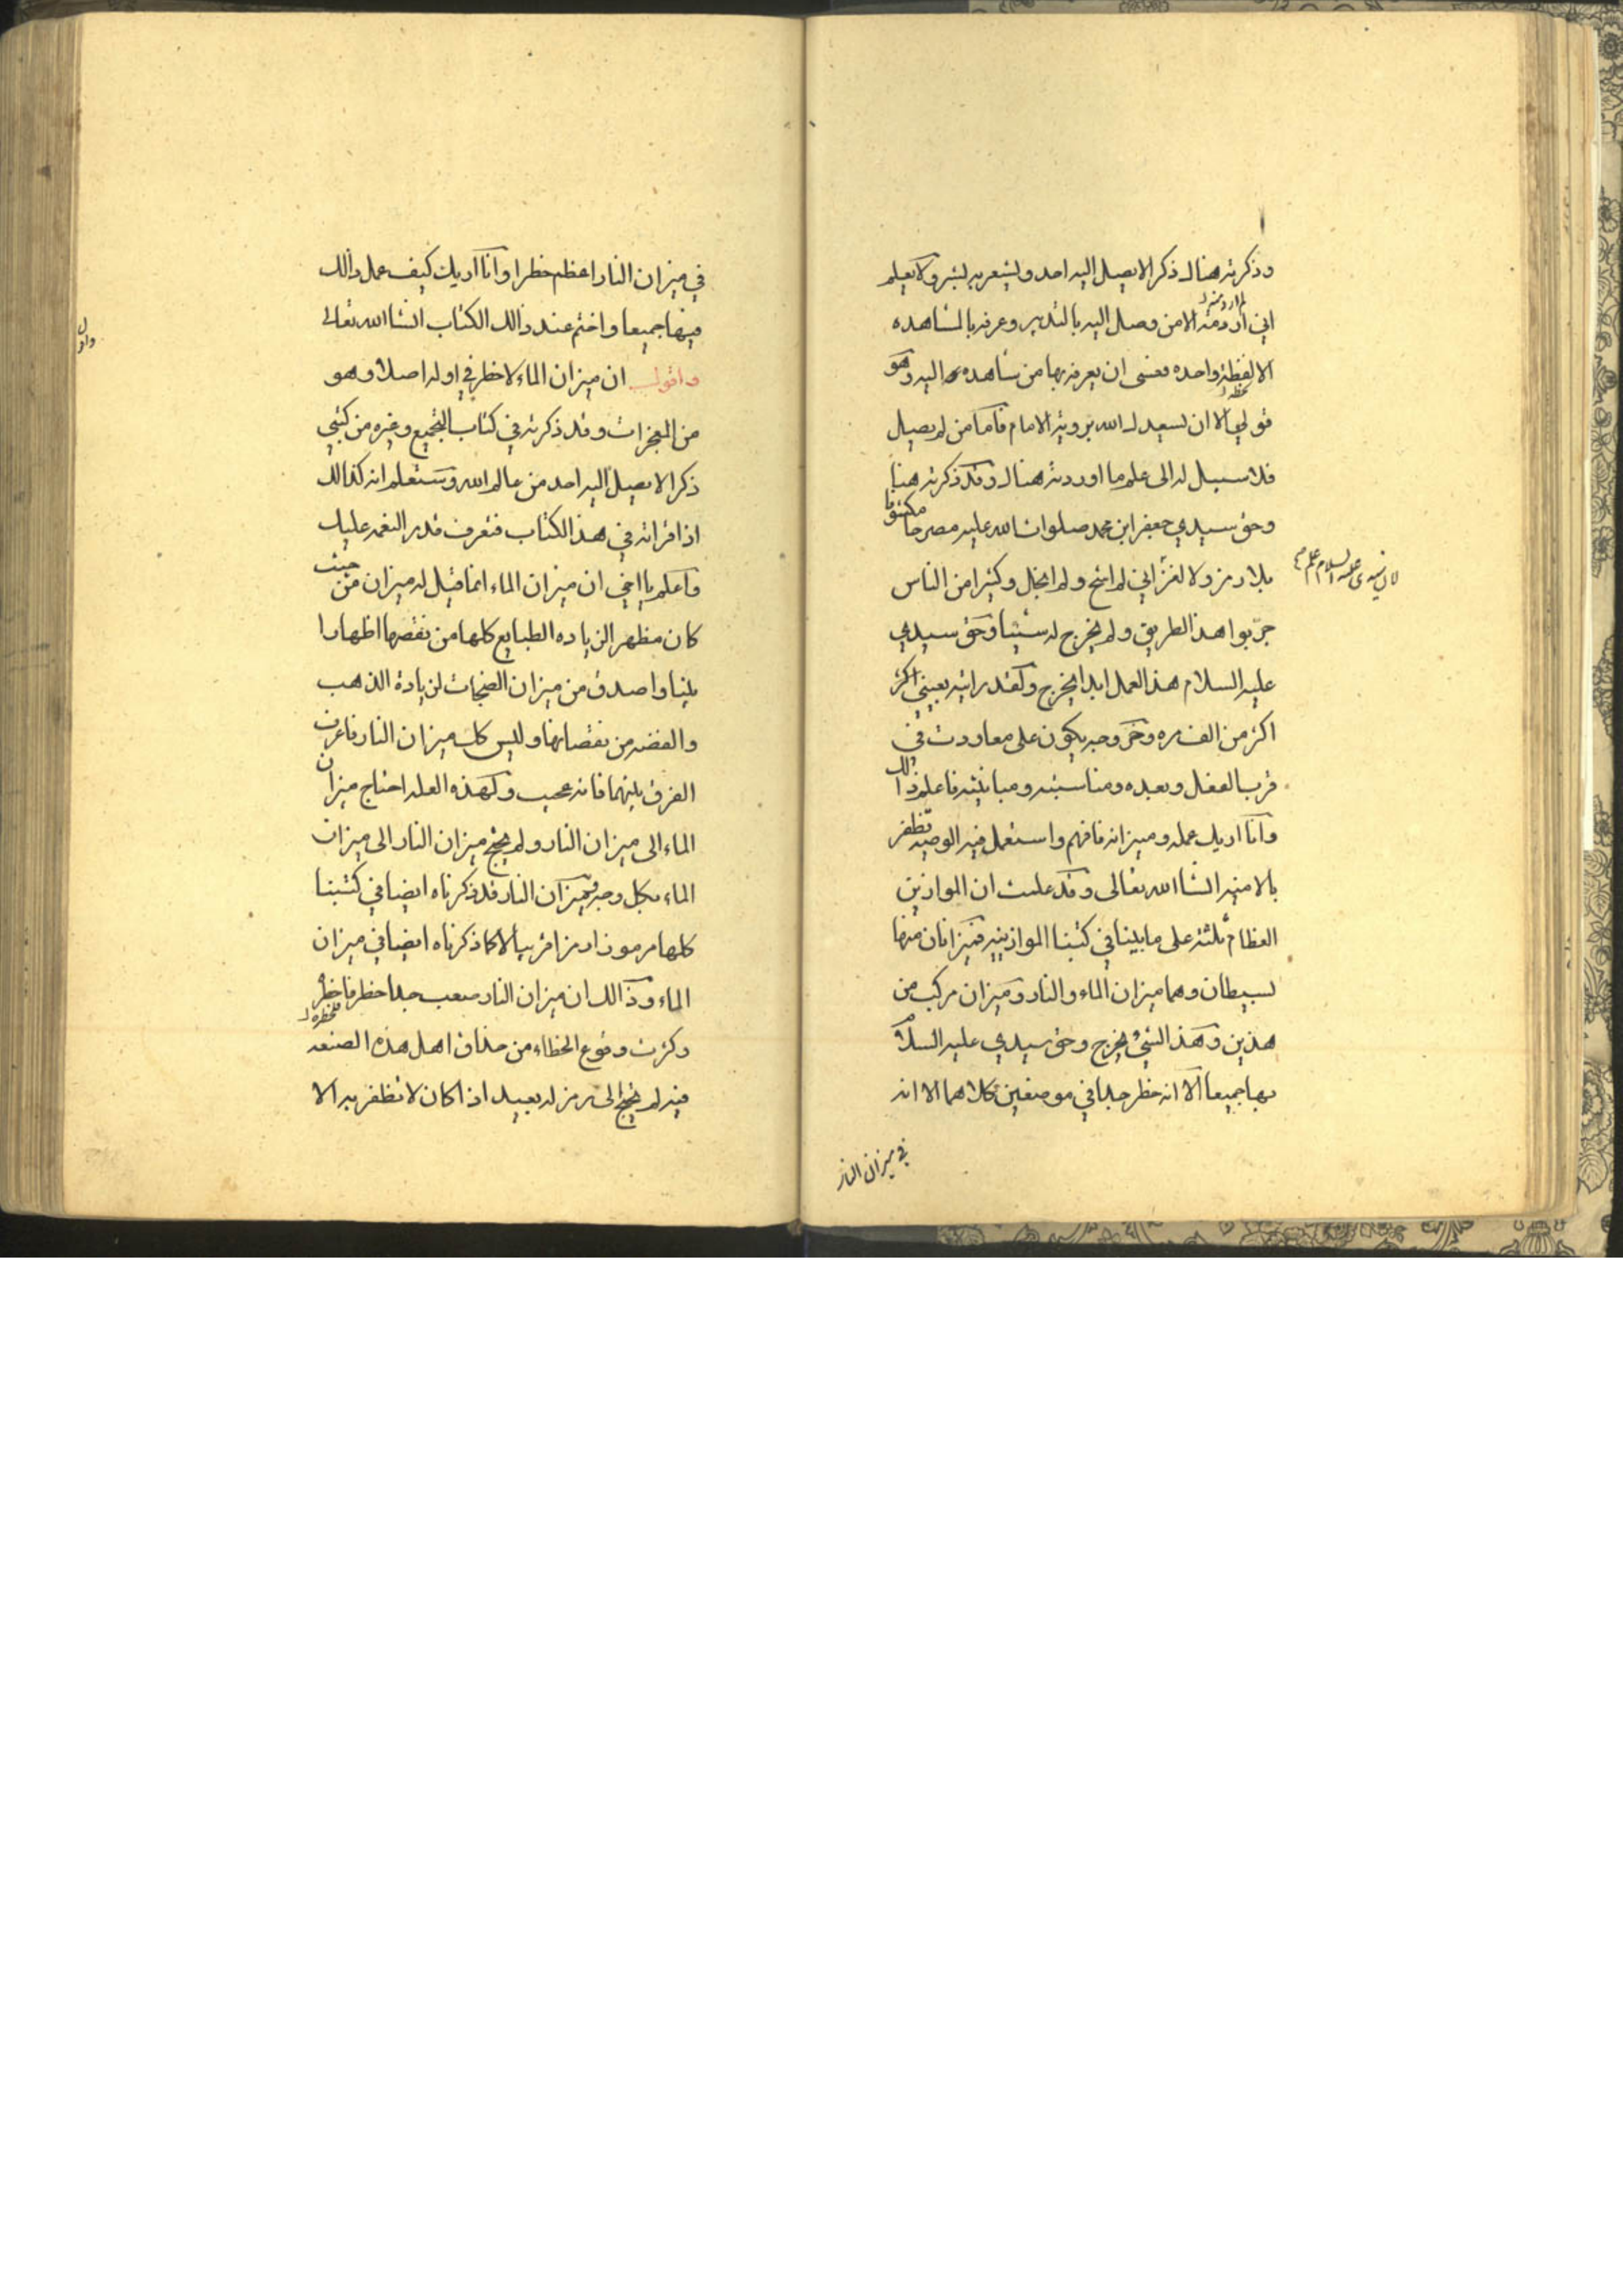 وذكرته هناك ذكرا لا يصل اليه احد ويشعر به بشر ولا يعلم
اني اردمته الا من وصل اليه بالتدبير وعرفه بالمشاهده
الا لفظة واحده فعسى ان يعرفه بها من شاهده اليه وهو
قولي الا ان يسعدك الله برويته الامام فاما من لم يصل
فلا سبيل له الى علم ما اوردته هناك وقد ذكرته هنا
وحق سيدي جعفر ابن محمد صلوات الله عليه مصرحا مكشوفا
بلا رمز ولا لغز اني لم اشح ولم ابخل وكثيرا من الناس
لان سيدي عليه السلام
جربوا هذا الطريق ولم يخرج له شيئا وحق سيدي
عليه السلام هذا العمل ابدا يخرج ولقد رايته بعيني اكثر
اكثر من الف مره وخروجه يكون على معاودت في
قرب الفعل وبعده ومناسبته ومباينته فاعلم ذالك
وانا اريك عمله وميزانه فافهم واستعمل فيه الوصيه تظفر
بالامنيه انشا الله تعالى وقد علمت ان الموازين
العظام ثلثة على ما بينا في كتبنا الموازينيه فميزانان منها
بسيطان وهما ميزان الماء والنار وميزان مركب من
هذين وهذا الشئ يخرج وحق سيدي عليه السلام
بها جميعا الا انه خطر جدا في موضعين كلاهما الا انه
في ميزان النار
في ميزان النار اعظم خطرا وانا اريك كيف عمل ذالك
فيها جميعا واختم عند ذالك الكتاب انشا الله تعالى
واقول ان ميزان الماء لا خطر في اوله اصلا وهو
من المعجزات وقد ذكرته في كتاب التجميع وغيره من كتبي
ذكرا لا يصل اليه احد من عالم الله وستعلم انه كذالك
اذا قراته في هذا الكتاب فتعرف قدر النعمه عليك
واعلم يا اخي ان ميزان الماء انما قيل له ميزان من حيث
كان مظهر الزياده الطبايع كلها من نقصها اظهارا
بينا واصدق من ميزان الصنجات لزيادة الذهب
والفضه من نقصانها وليس كذلك ميزان النار فاعرف
الفرق بينهما فانه عجيب ولهذه العله احتاج ميزان
الماء الى ميزان النار ولم يحتج ميزان النار الى ميزان
الماء بكل وجه وميزان النار قد ذكرناه ايضا في كتبنا
كلها مرموزا رمزا قريبا لا كما ذكرناه ايضا في ميزان
الماء وذالك ان ميزان النار صعب جدا خطر فاخطر
وكثرت وقوع الخطاء من حذاق اهل هذه الصنعه
فيه لم يحتج الى رمز له بعيد اذا كان لا تظفر به الا